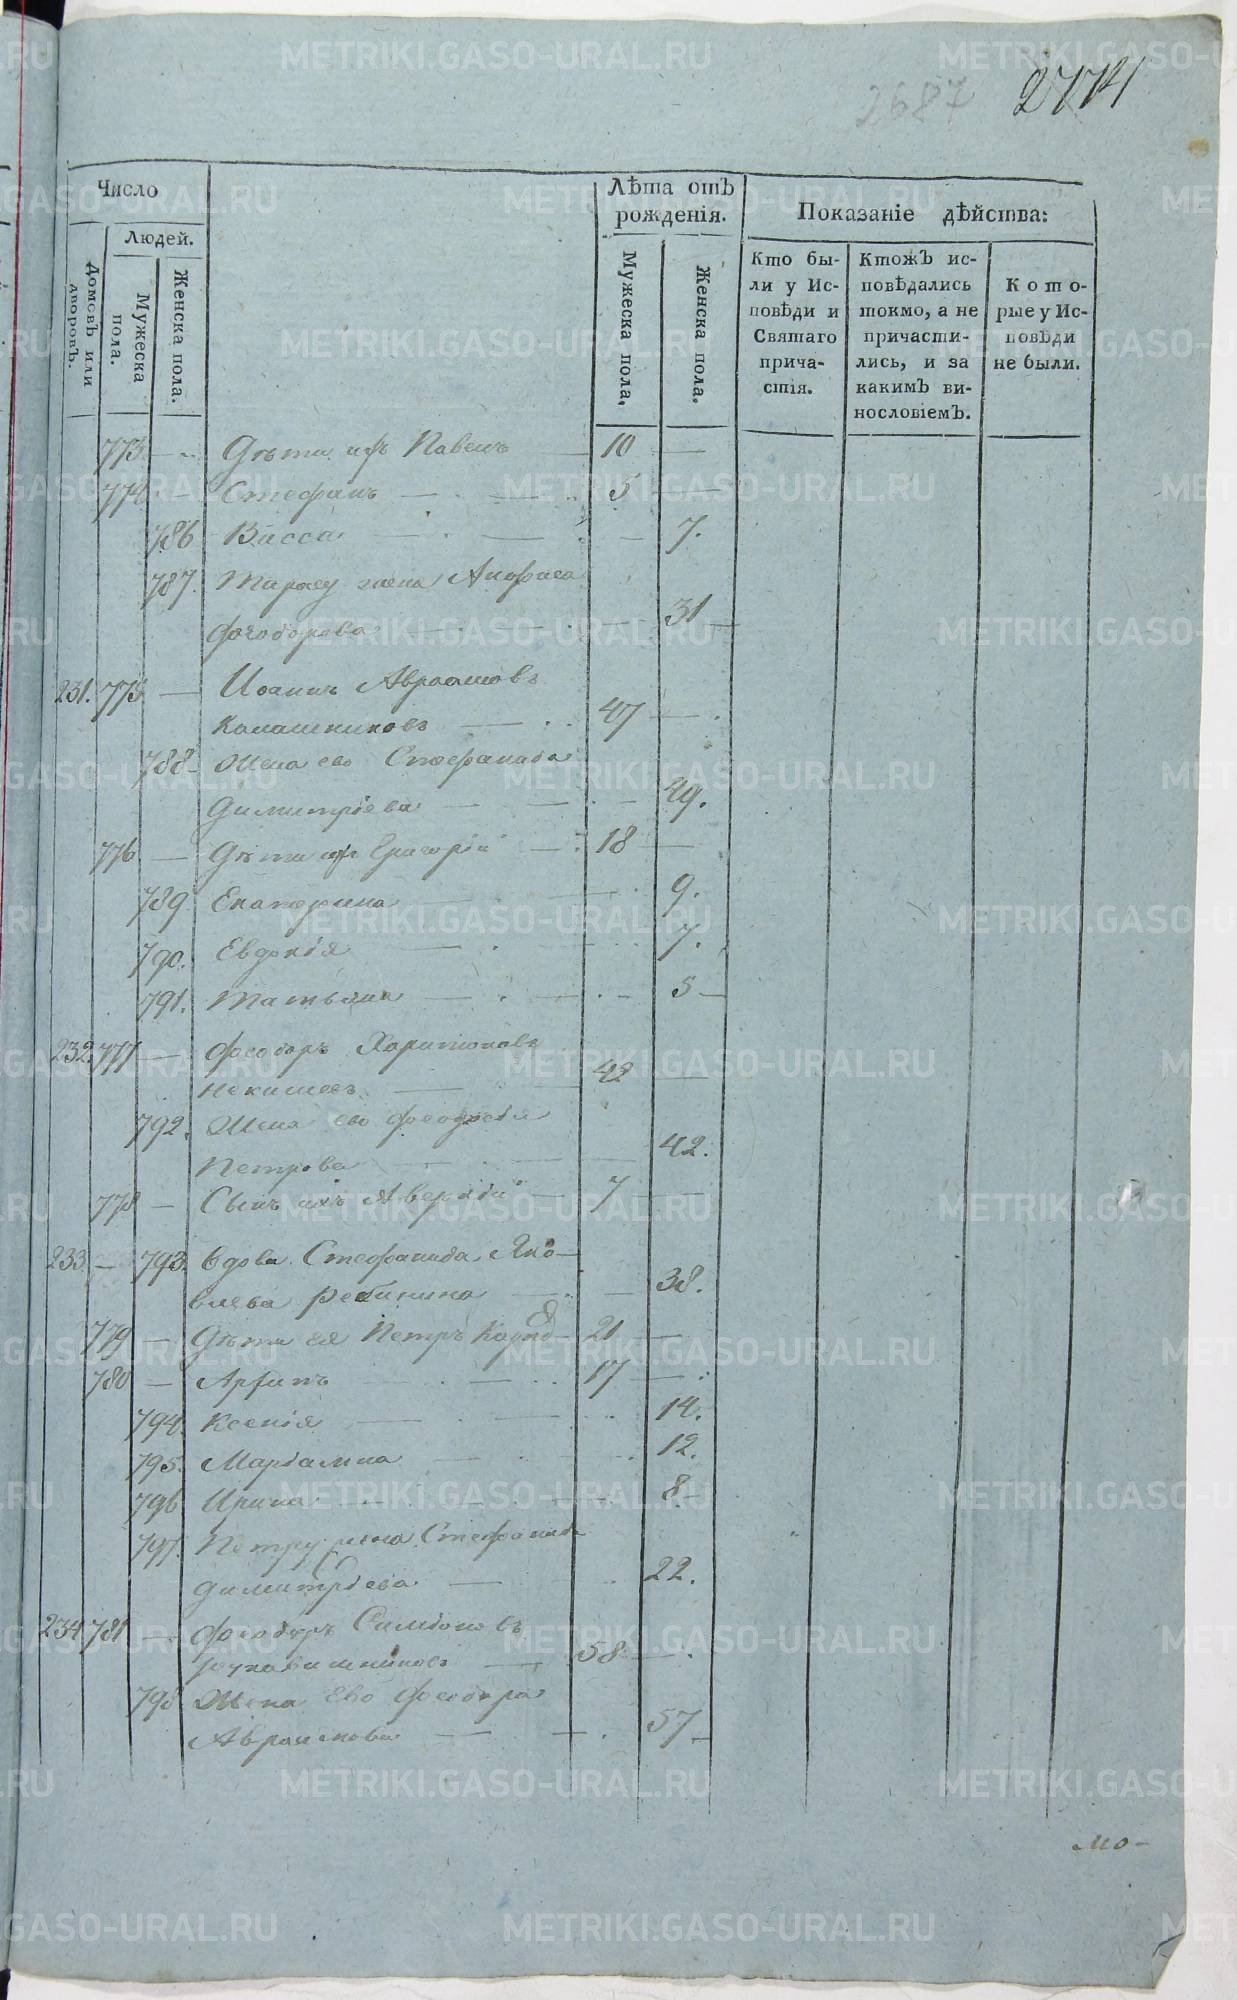 2687 2774
Число
Лѣта отъ рожденія.
Показаніе дѣйства:
Людей.
Домовъ или дворовъ.
Мужеска пола.
Женска пола.
Мужеска пола.
Женска пола.
Кто были у Исповѣди и Святаго причастія.
Ктожъ исповѣдались токмо, а не причастились, и за какимъ винословіемъ.
Которые у Исповѣди не были.
773 — Дѣти ихъ Павелъ 10 —
774 — Стефанъ — 5 —
786 Васса — — 7.
787. Тарасу жена Анфиса
Феодорова — 31 —
231. 775 — Иоаннъ Авраамовъ
Калашниковъ — 47 — .
788 — Жена ево Стефанида
Димитріева — — 49.
776 — Дѣти ихъ Григорій — 18 —
789 Екатерина — 9.
790. Евдокія — 7.
791. Татьяна — . — . — 5 —
232. 777 — Феодоръ Харитоновъ
Некишеевъ — 42 —
792. Жена ево Феодосія
Петрова — — 42.
778 — Сынъ ихъ Аверкій — 7 —
233 — 793. Вдова Стефанида Яко-
влева Рябинина — — 38.
779 — Дѣти ея Петръ 21 —
780 — Архипъ 17 — .
794. Ксенія — 14.
795. Маріамна — 12.
796 Ирина — 8 —
797. Петру жена Стефанида
Димитріева — 22.
234 781 — Феодоръ Симіоновъ
Рукавишниковъ — 58 — .
798 Жена Ево Феодора
Авраамова — — . 57 —
мо-
METRIKI.GASO-URAL.RU